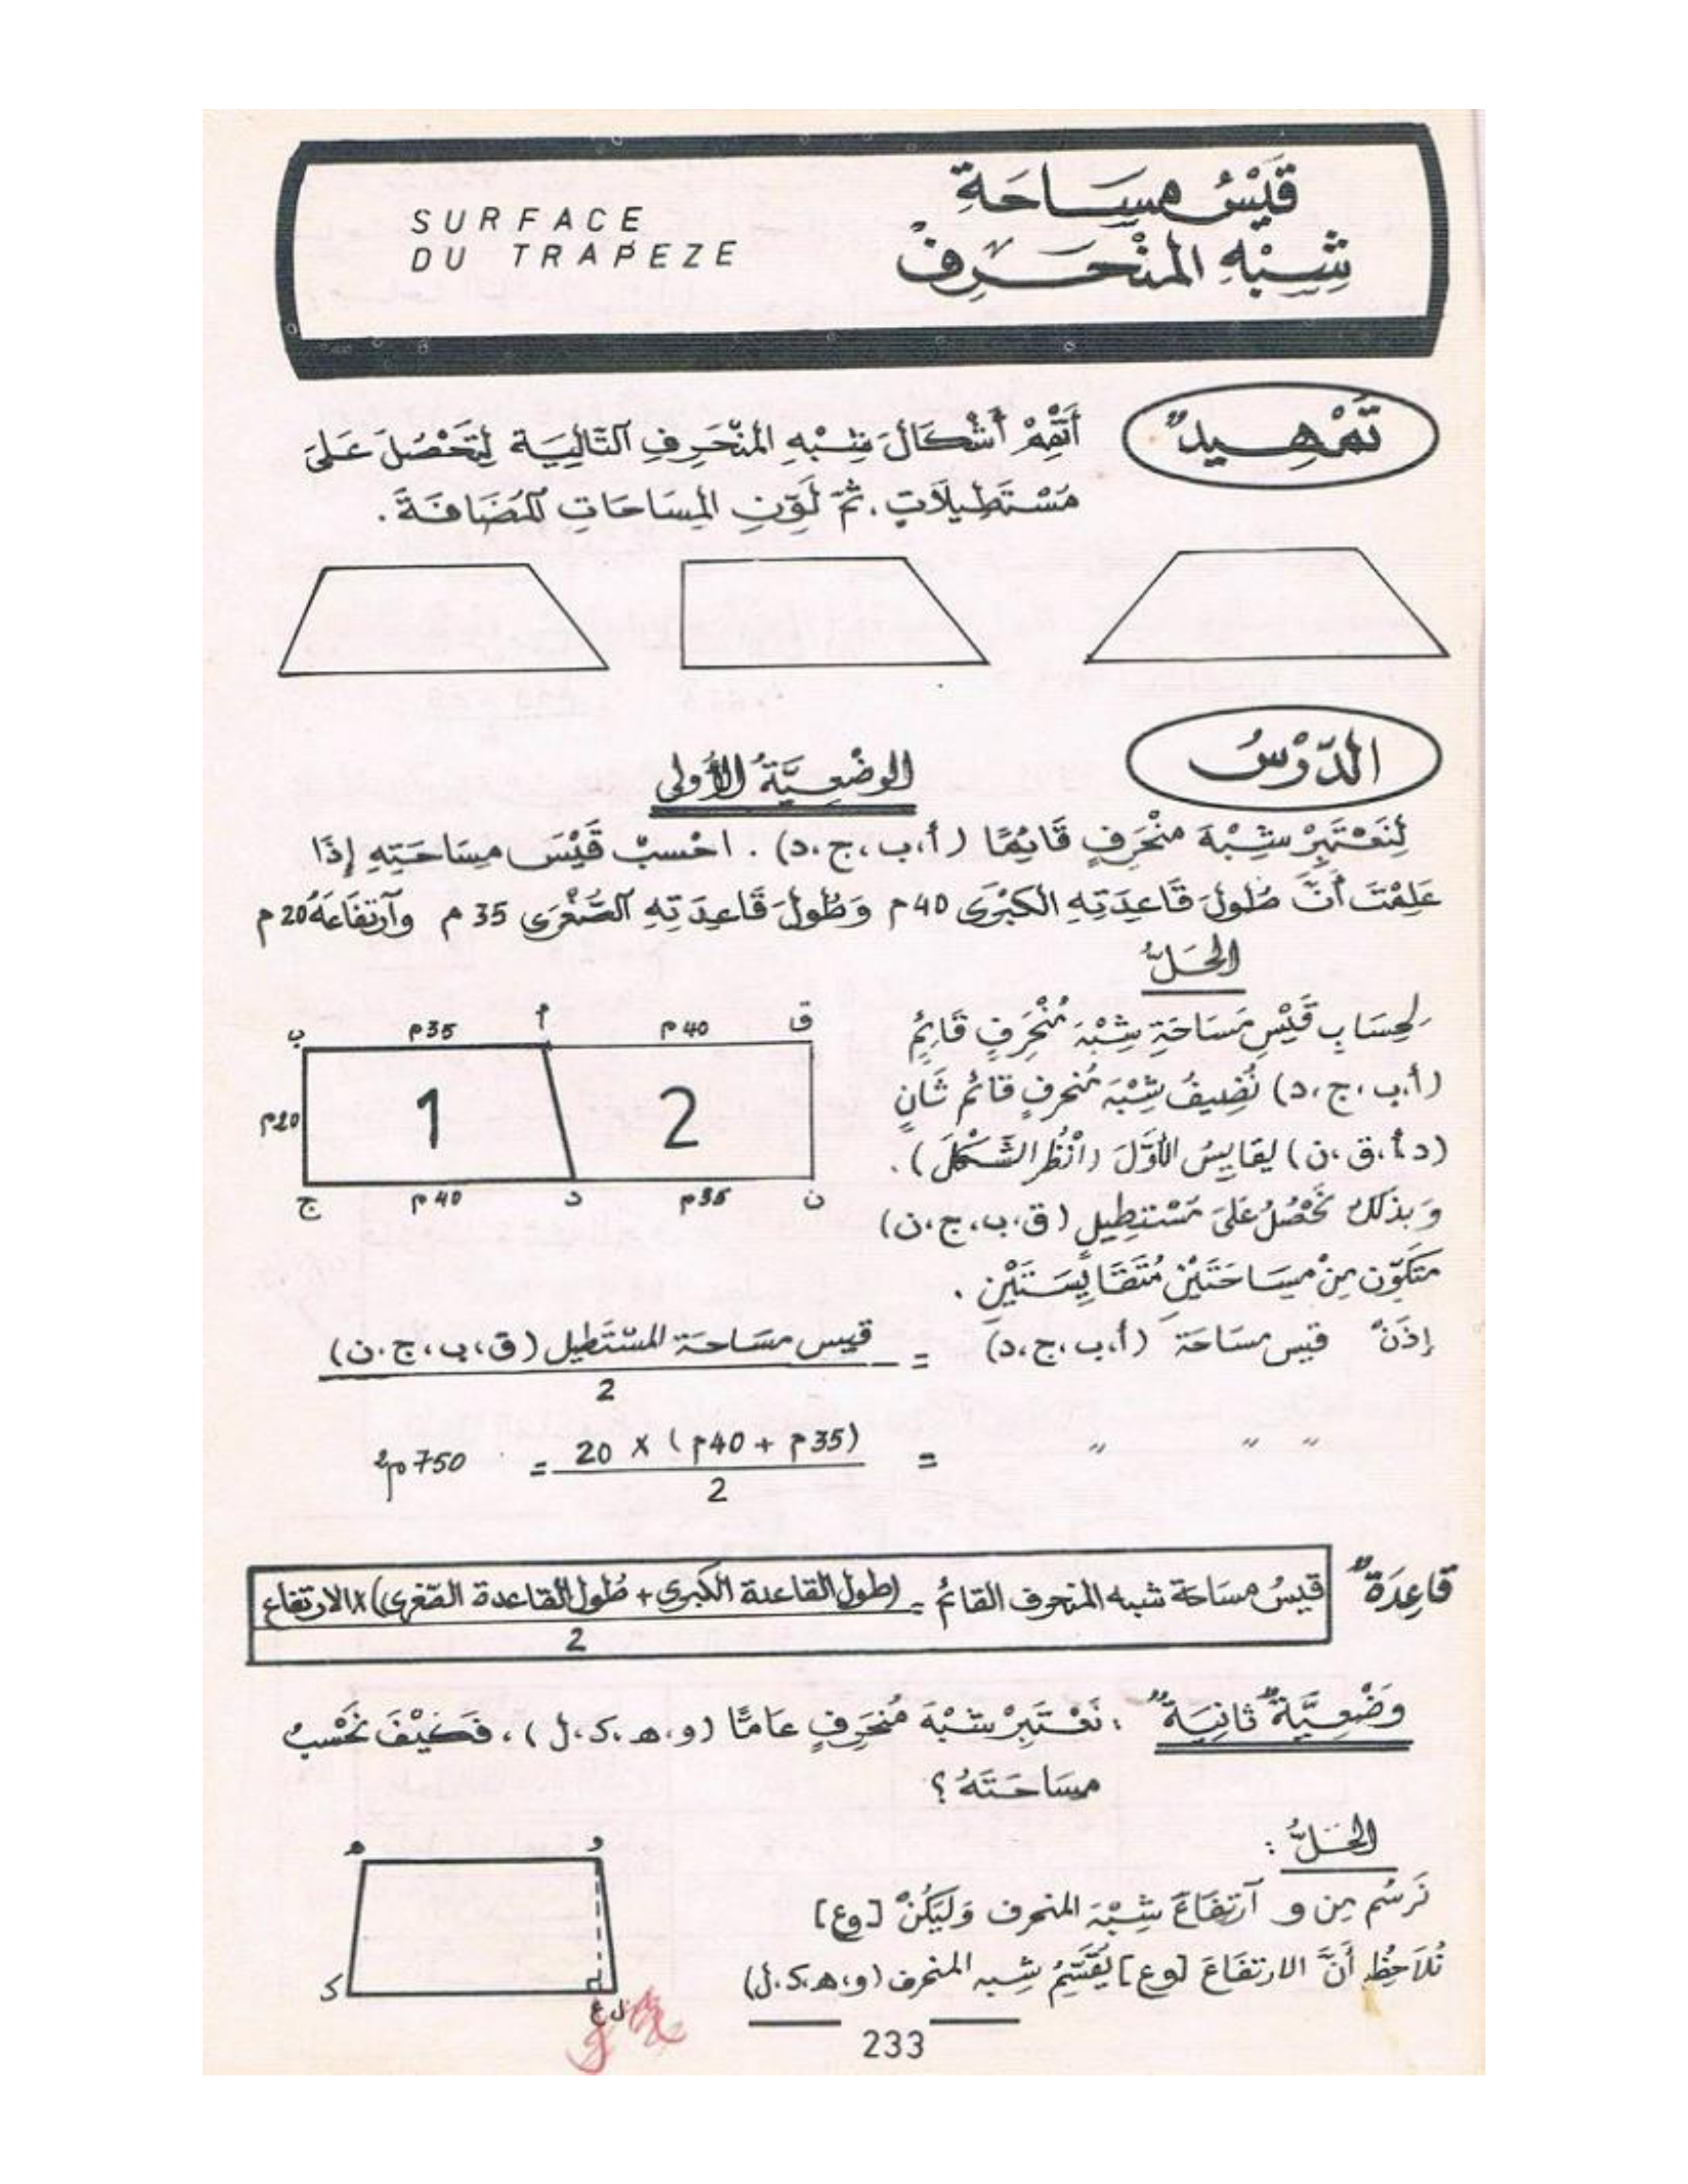 قَيْسُ مِسَاحَةِ
شِبْهِ المُنْحَرِفْ
SURFACE
DU TRAPEZE
تَمْهِيدٌ
أَتْمِمْ أَشْكَالَ شِبْهِ المُنْحَرِفِ التَّالِيَةِ لِتَحْصُلَ عَلَىَ
مُسْتَطِيلَاتٍ. ثمّ لَوِّنِ المِسَاحَاتِ المُضَافَةَ.
الدَّرْسُ
الوضْعِيَّةُ الأُولى
لِنَعْتَبِرْ شِبْهَ مُنْحَرِفٍ قَائِمًا (أ،ب،ج،د). احْسبْ قَيْسَ مِسَاحَتِهِ إِذَا
عَلِمْتَ أَنَّ طُولَ قَاعِدَتِهِ الكبْرَى 40 م وَطُولَ قَاعِدَتِهِ الصُّغْرَى 35 م وآرْتفَاعَهُ 20 م
الحَلُّ
لِحِسَابِ قَيْسِ مَسَاحَةِ شِبْهِ مُنْحَرِفٍ قَائِمٍ
(أ،ب،ج،د) نُضِيفُ شِبْهَ مُنحرفٍ قائم ثَانٍ
(د،أ،ق،ن) يقايِسُ الأَوَّلَ (انْظُر الشَّكْلَ).
وَبذَلكَ نَحْصُلُ عَلىَ مُسْتطِيلٍ (ق،ب،ج،ن)
متَكَوّن مِنْ مِسَاحَتَيْنِ مُتَقَايِسَتَيْنِ.
ب م35 أ م40 ق
م20 1 2
ج م40 د م35 ن
إِذَنْ قيس مسَاحَة (أ،ب،ج،د) = قيس مسَاحَة المسْتَطِيل (ق،ب،ج،ن)
2
" " " = (35م + 40م) x 20 = 750م2
2
قَاعِدَةٌ قَيسُ مسَاحَة شبه المنحرف القائم = (طول القاعدة الكبرى + طُول القاعدة الصّغرى) x الارتفاع
2
وَضْعِيَّةٌ ثَانِيَةٌ : نَعْتَبِرْ شِبْهَ مُنحَرِفٍ عَامًّا (و،ه،ك،ل)، فَكَيْفَ نَحْسبُ
مسَاحَتَهُ ؟
الحَلُّ :
نَرسُم مِن و آرتفَاعَ شِبْهِ المنحرف وَليَكُنْ [وع]
نُلاَحِظُ أَنَّ الارتفَاعَ [وع] يُقَسِّمُ شِبه المنحرف (و،ه،ك،ل)
ه و
ك ع ل
233